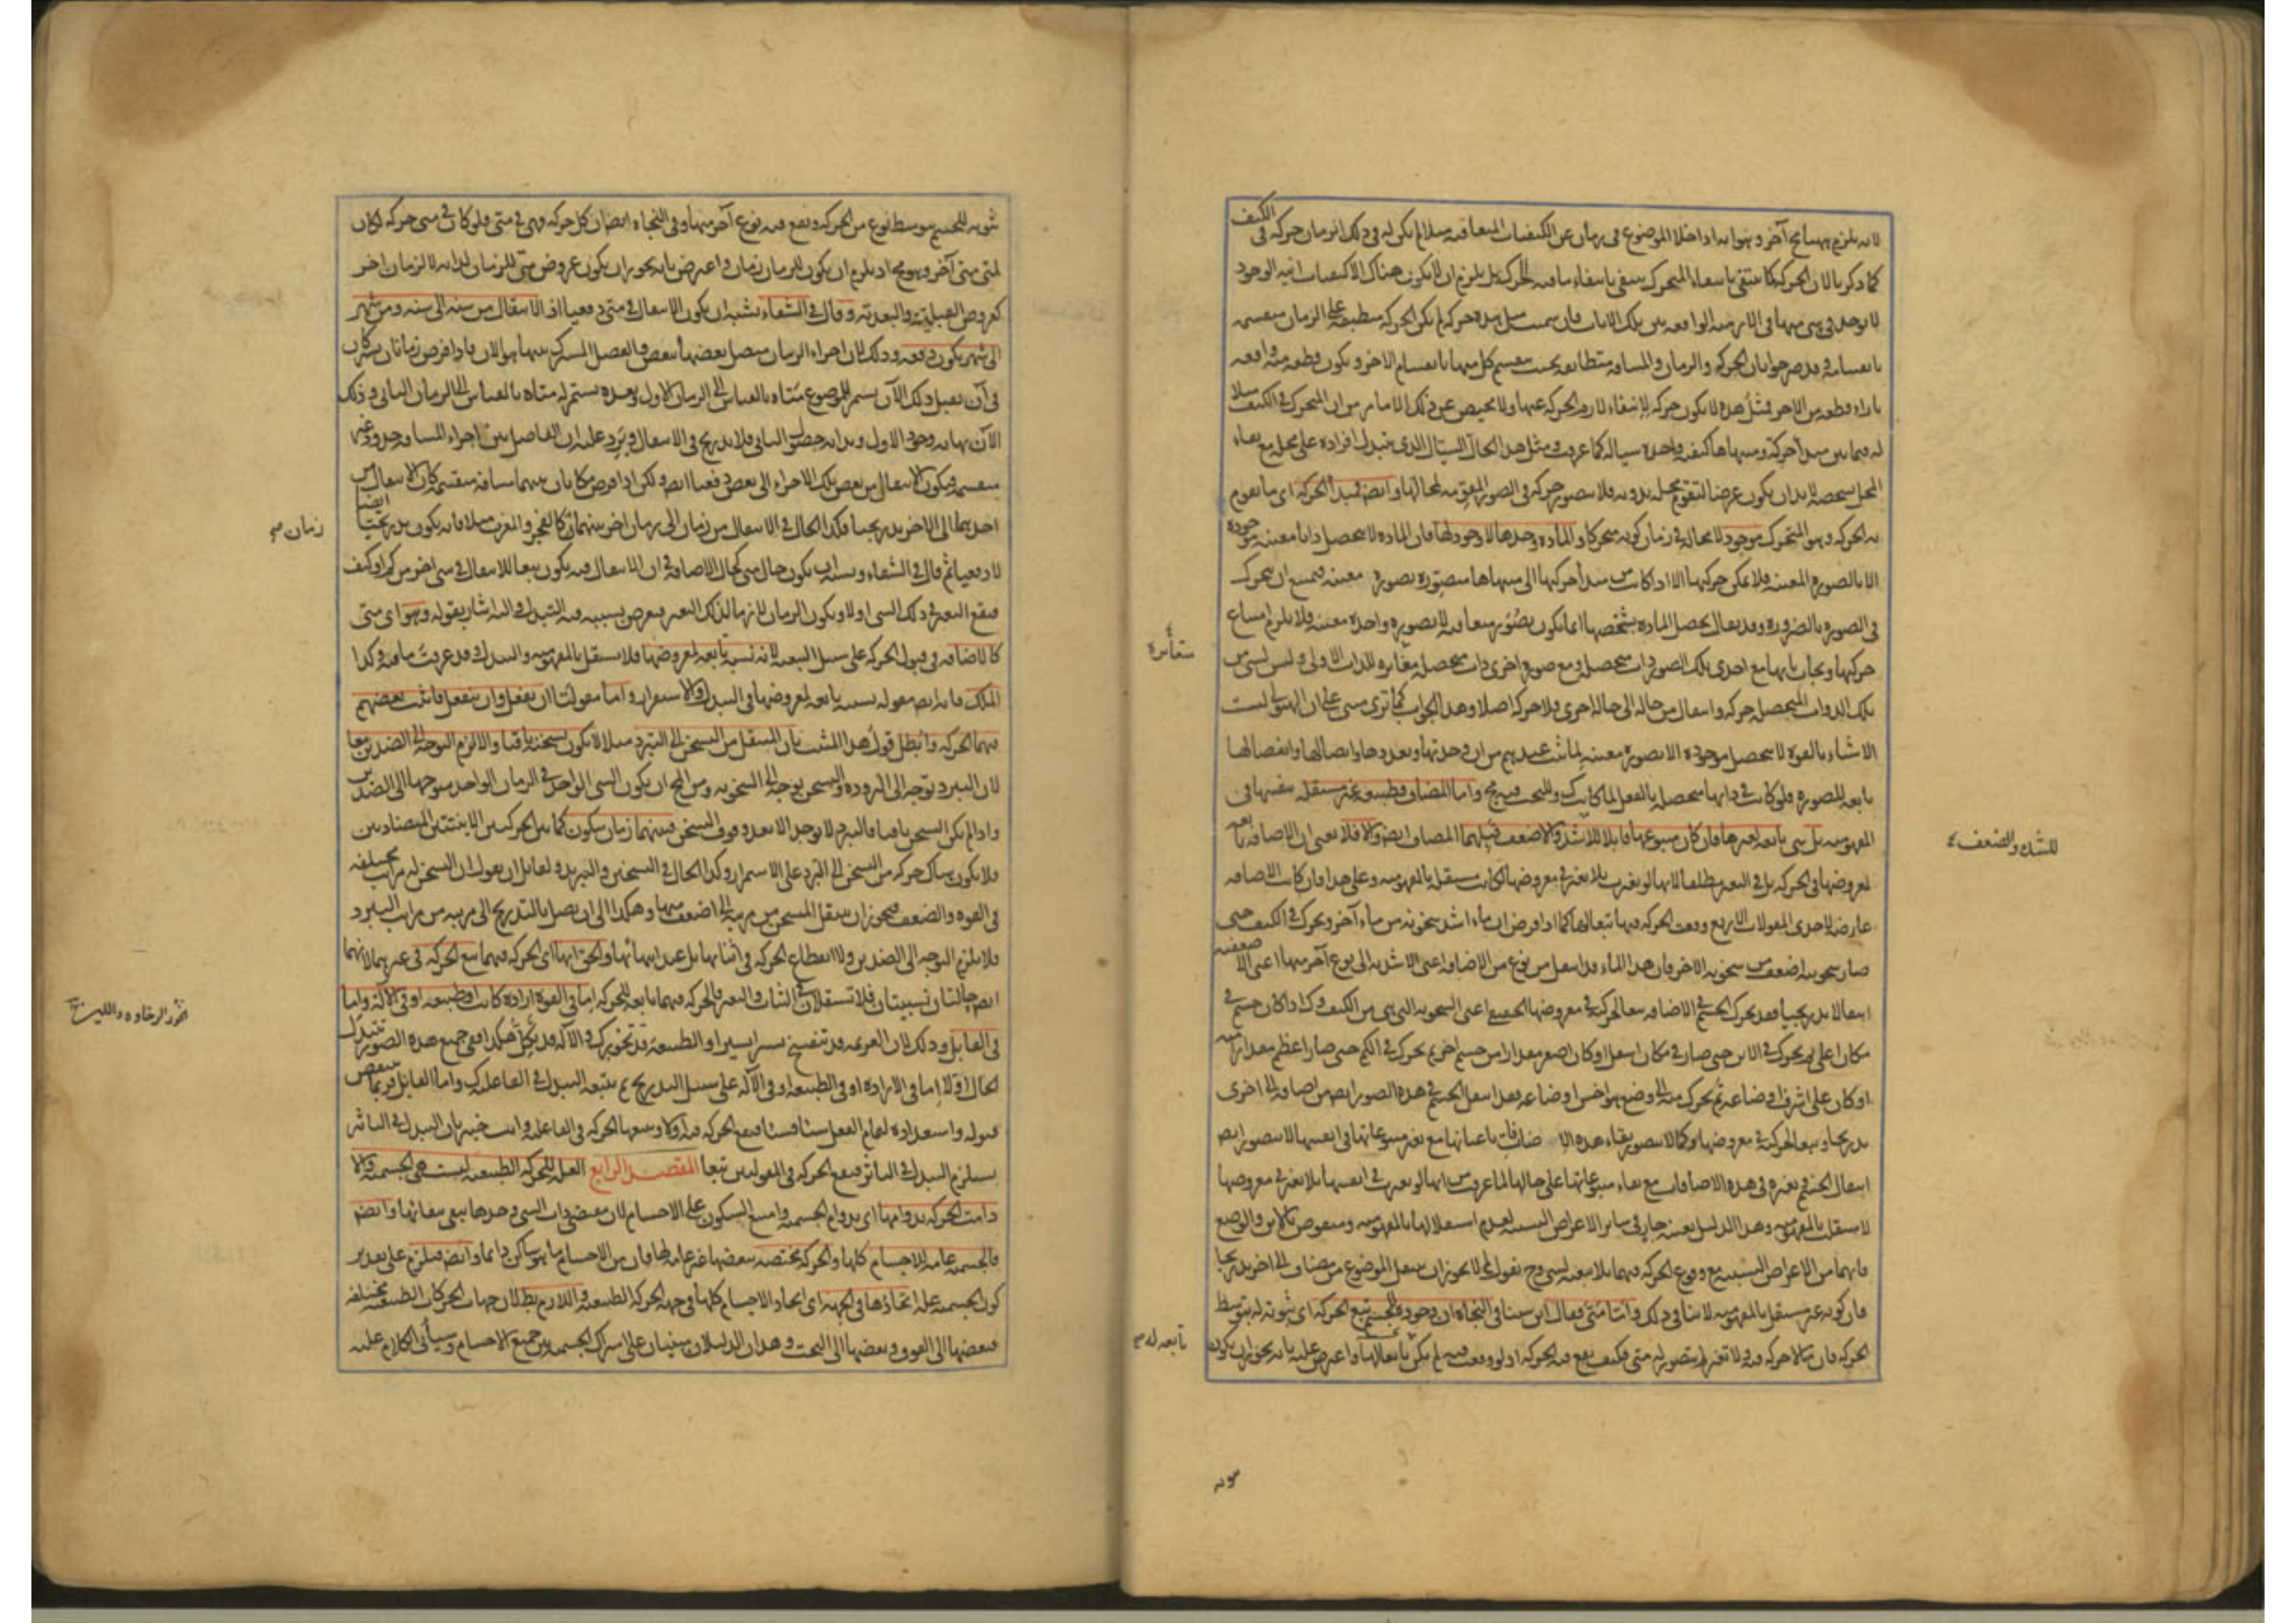 لانه يلزم ههنا مح آخر وهو انه اذا خلا الموضوع في زمان عن الكيفيات المتعاقبة مثلا لم يكن له في ذلك الزمان حركة في الكيف
كما ذكر بالان الحركة كما ينتفي بانتفاء المتحرك ينتفي بانتفاء ما فيه الحركة بل يلزم ان لا يكون هناك الا كيفيات انية الوجود
لا يوجد شيء منها في الازمنة الواقعة بين تلك الانات فان سميت مثل هذه حركة لم يكن الحركة منطبقة على الزمان منقسمة
بانقسامه وقد صرحوا بان الحركة والزمان والمسافة متطابقة بحيث ينقسم كل منها بانقسام الاخر و يكون قطعة منه واقعة
بازاء قطعة من الاخر فمثل هذه لا يكون حركة لانتفاء لازم الحركة عنها ولا محيص عن ذلك الا بما مر من ان المتحرك في الكيف مثلا
له فيما بين مبدأ حركته ومنتهاها كيفية واحدة سيالة كما عرفت ومثل هذا الحال السيال الذي يتبدل افراده على محل مع بقاء
المحل بشخصه لا بد ان يكون عرضا لتقوم محله بدونه فلا يتصور حركة في الصور المقومة لمحالها وايضا فمبدأ الحركة اي ما يقوم
به الحركة وهو المتحرك موجود لا محالة في زمان كونه متحركا والمادة وحدها لا وجود لها فان المادة لا تتحصل ذاتا معينة موجودة
الا بالصورة المعينة فلا يمكن حركتها الا اذا كانت من مبدأ حركتها الى منتهاها متصورة بصورة معينة فيمتنع ان يتحرك
في الصورة بالضرورة وقد يقال تحصل المادة بشخصها انما يكون بصور متعاقبة لا بصورة واحدة معينة فلا يلزم امتناع
حركتها ويجاب بانها مع احدى تلك الصور ذات متحصلة ومع صورة اخرى ذات متحصلة مغايرة للذات الاولى وليس لشيء من
تلك الذوات المتحصلة حركة وانتقال من حالة الى حالة اخرى فلا حركة اصلا وهذا الجواب كما ترى مبني على ان الهيولى ليست
الا شيئا بالقوة لا يتحصل موجودة الا بصورة معينة لما ثبت عندهم من ان وحدتها وتعددها واتصالها وانفصالها
تابعة للصورة فلو كانت في ذاتها متحصلة بالفعل لما كانت كذلك وللبحث فيه مجال واما المضاف فطبيعة غير مستقلة بنفسها في
المفهومية بل هي تابعة لغيرها فان كان متبوعها قابلا للاشد والاضعف قبلهما المضاف ايضا والا فلا يعني ان الاضافة تابعة
لمعروضها في الحركة بل في التغير مطلقا لانها لو تغيرت بلا تغير في معروضها لكانت مستقلة بالمفهومية وعلى هذا فان كانت الاضافة
عارضة لاحدى المقولات الاربع وقعت الحركة فيها تبعا لها كما اذا فرض ان ماء اشد سخونة من ماء آخر وتحرك في الكيف حتى
صار سخونته اضعف من سخونة الاخر فان هذا الماء قد انتقل من نوع من الاضافة اعني الاشدية الى نوع آخر منها اعني الاضعفية
انتقالا تدريجيا فقد تحرك الجسم في الاضافة تبعا لحركته في معروضها الحقيقي اعني السخونة التي هي من الكيف وكذا اذا كان جسم في
مكان اعلى ثم تحرك في الاين حتى صار في مكان اسفل او كان اصغر مقدارا من جسم اخر ثم تحرك في الكم حتى صار اعظم مقدارا منه
او كان على اشرف اوضاعه ثم تحرك منه الى وضع هو اخس اوضاعه فقد انتقل الجسم في هذه الصور ايضا من اضافة الى اخرى
تدريجا وتبعا لحركته في معروضها وكما لا يتصور بقاء هذه الاضافات باعيانها مع تغير متبوعاتها في انفسها لا يتصور ايضا
انتقال الجسم وتغيره في هذه الاضافات مع بقاء متبوعاتها على حالها لما عرفت من انها لو تغيرت في انفسها بلا تغير في معروضها
لاستقلت بالمفهومية وهذا الدليل بعينه جار في سائر الاعراض النسبية لعدم استقلالها بالمفهومية ومنقوض بالاين والوضع
فانهما من الاعراض النسبية مع وقوع الحركة فيهما بلا تبعية لشيء وح نقول لم لا يجوز ان ينتقل الموضوع من مضاف الى اخر تدريجا
فان كونه غير مستقل بالمفهومية لا ينافي ذلك واما متى فقال ابن سينا في النجاة ان وجوده للجسم بتبع الحركة اي ثبوته له بتوسط
الحركة فان ما لا حركة فيه ولا تغير لم يتصور له متى فكيف يقع فيه الحركة اذ لو وقعت فيه لم يكن تابعا لها واعترض عليه بانه يجوز ان يكون
متغايرة
للشدة والضعف
تابعة له
ثبوته للجسم بتوسط نوع من الحركة ويقع فيه نوع آخر منها وفي النجاة ايضا ان كل حركة فهي في متى فلو كان في متى حركة لكان
لمتى متى آخر وهو مح اذ يلزم ان يكون للزمان زمان واعترض بانه يجوز ان يكون عروض متى للزمان لذاته لا لزمان اخر
كعروض القبلية والبعدية وقال في الشفاء يشبه ان يكون الانتقال في متى دفعيا اذ الانتقال من سنة الى سنة ومن شهر
الى شهر يكون دفعة وذلك لان اجزاء الزمان متصل بعضها ببعض والفصل المشترك بينها هو الان فاذا فرض زمانان يشتركان
في آن فقبل ذلك الآن يستمر للموضوع متاه بالقياس الى الزمان الاول وبعده يستمر له متاه بالقياس الى الزمان الثاني وذلك
الآن نهاية وجود الاول وبداية حصول الثاني فلا تدريج في الانتقال ويرد عليه ان الفاصل بين اجزاء المسافة حدود غير
منقسمة فيكون الانتقال من بعض تلك الاجزاء الى بعض دفعيا ايضا ولكن اذا فرض مكانان بينهما مسافة منقسمة كان الانتقال من
احدهما الى الاخر تدريجيا فكذا الحال في الانتقال من زمان الى زمان اخر بينهما زمان كالفجر والمغرب مثلا فانه يكون تدريجيا ايضا
لا دفعيا ثم قال في الشفاء ويشبه ان يكون حال متى كحال الاضافة في ان الانتقال فيه يكون تبعا للانتقال في شيء اخر من كم او كيف
فيقع التغير في ذلك الشيء اولا ويكون الزمان لازما لذلك التغير فيعرض بسببه فيه التبدل واليه اشار بقوله وهو اي متى
كالاضافة في قبول الحركة على سبيل التبعية لانه نسبة تابعة لمعروضها فلا يستقل بالمفهومية والتبدل وقد عرفت ما فيه وكذا
الملك فانه ايضا مقولة نسبية تابعة لمعروضها في التبدل والاستقرار واما مقولتا ان يفعل وان ينفعل فاثبت بعضهم
فيهما الحركة وابطل قول هذا المثبت بان المنتقل من التسخن الى التبرد مثلا لا يكون تسخنه باقيا والا لزم التوجه الى الضدين معا
لان التبرد توجه الى البرودة والتسخن توجه الى السخونة ومن المح ان يكون الشيء الواحد في الزمان الواحد متوجها الى الضدين
واذا لم يكن التسخن باقيا فالتبرد لا يوجد الا بعد وقوف التسخن فبينهما زمان سكون كما بين الحركتين الاينيتين المتضادتين
فلا يكون هناك حركة من التسخن الى التبرد على الاستمرار وكذا الحال في التسخين والتبريد ولقائل ان يقول ان التسخن له مراتب مختلفة
في القوة والضعف فيجوز ان ينتقل المتسخن من مرتبة الى اضعف منها وهكذا الى ان يصل بالتدريج الى مرتبة من مراتب التبرد
فلا يلزم التوجه الى الضدين ولا انقطاع الحركة في اثنائها بل عند انتهائها والحق انها اي الحركة فيهما تتبع الحركة في غيرهما لانهما
ايضا حالتان نسبيتان فلا تستقلان في الثبات والتغير فالحركة فيهما تابعة للحركة اما في القوة ارادة كانت او طبيعة او في الآلة واما
في القابل وذلك لان العزيمة قد تنفسخ يسيرا يسيرا والطبيعة قد تخور كذلك والآلة قد تكل هكذا ففي جميع هذه الصور يتبدل
الحال اولا اما في الارادة او في الطبيعة او في الآلة على سبيل التدريج ثم يتبعه التبدل في الفاعلية كذلك واما القابل فربما ينتقص
قبوله واستعداده لتمام الفعل شيئا فشيئا فيقع الحركة فيه اولا ويتبعها الحركة في الفاعلية وانت خبير بان التبدل في التاثير
يستلزم التبدل في التاثر فيقع الحركة في المقولتين تبعا المقصد الرابع العلة للحركة الطبيعية ليست هي الجسمية والا
دامت الحركة بدوامها اي بدوام الجسمية وامتنع السكون على الاجسام لان مقتضى ذات الشيء وحدها يبقى ببقائها وايضا
فالجسمية عامة للاجسام كلها والحركة مختصة ببعضها غير عامة لها فان من الاجسام ما هو ساكن دائما وايضا فيلزم على تقدير
كون الجسمية علة اتحادها في الجهة اي اتحاد الاجسام كلها في جهة الحركة الطبيعية واللازم بطلان جهات الحركات الطبيعية مختلفة
فبعضها الى الفوق وبعضها الى التحت وهذان الدليلان مبنيان على اشتراك الجسمية بين جميع الاجسام وسيأتي الكلام عليه
زمان